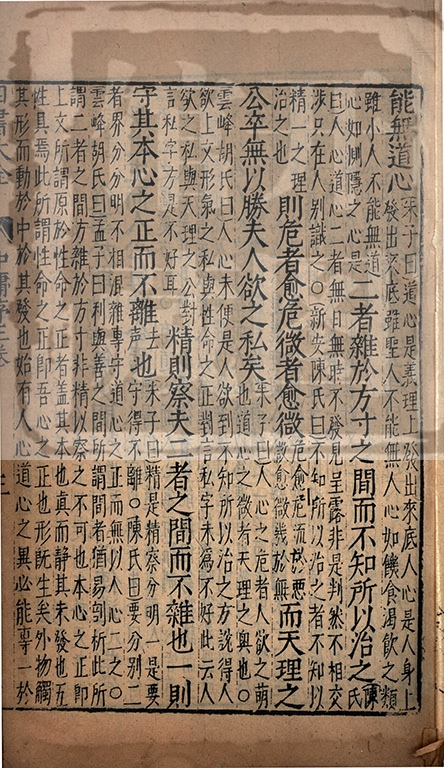 能無道心朱子曰道心是義理上發出來底人心是人身上發出來底雖聖人不能無人心如饑食渴飲之類
雖小人不能無道心如惻隱之心是二者雜於方寸之間而不知所以治之陳氏
曰人心道心二者無日無時不發見呈露非是判然不相交
涉只在人別識之○新安陳氏曰不知所以治之者不知以
精一之理治之也則危者愈危微者愈微危愈危流於惡微愈微幾於無而天理之
公卒無以勝夫人欲之私矣朱子曰人心之危者人欲之萌也道心之微者天理之奧也○
雲峰胡氏曰人心未便是人欲到不知所以治之方說得人
欲上文形氣之私與性命之正對言私字未為不好此云人
欲之私與天理之公對言私字方是不好耳精則察夫二者之間而不雜也一則
守其本心之正而不離去聲也朱子曰精是精察分明一是要守得不離○陳氏曰要分別二
者界分分明不相混雜專守道心之正而無以人心二之○
雲峰胡氏曰孟子曰利與善之間所謂間者猶易剖析此所
謂二者之間方雜於方寸非精以察之不可也本心之正即
上文所謂原於性命之正者蓋其本也真而靜其未發也五
性具焉此所謂性命之正即吾心之正也形既生矣外物觸
其形而動於中於其發也始有人心道心之異必能專一於
四書大全 中庸序